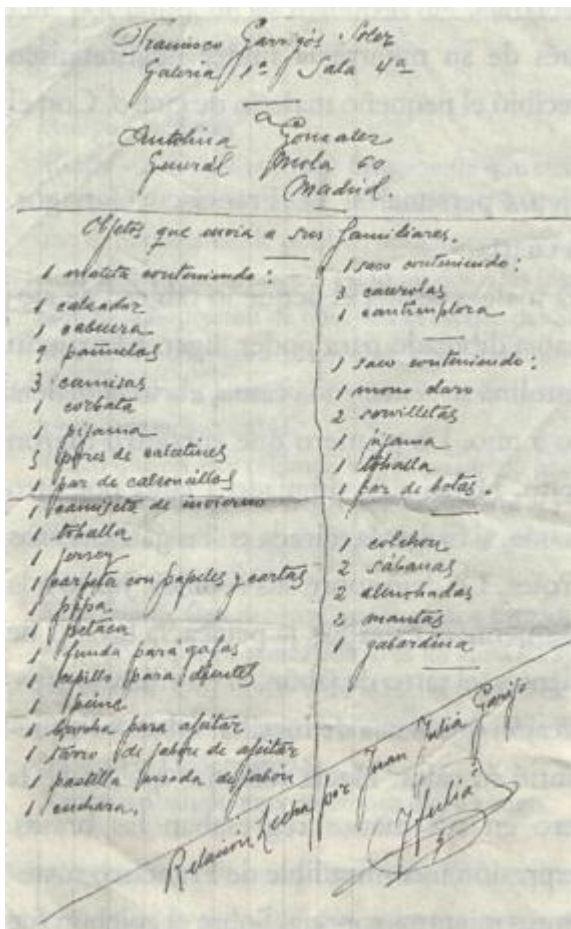 Francisco Garrigós Soler
Galeria 1ª Sala 4ª
a
Antolina Gonzalez
General Mola 60
Madrid.
Objetos que envia a sus familiares.
1 maleta conteniendo:
1 calzador
1
9 pañuelos
3 camisas
1 corbata
1 pijama
5 pares de calcetines
1 par de calzoncillos
1 camiseta de invierno
1 tohalla
1 jersey
1 carpeta con papeles y cartas
1 pipa
1 petaca
1 funda para gafas
1 cepillo para dientes
1 peine
1 brocha para afeitar
1 tarro de jabón de afeitar
1 pastilla usada de jabón
1 cuchara.
1 saco conteniendo:
3 cacerolas
1 cantimplora
1 saco conteniendo:
1 mono claro
2 servilletas
1 pijama
1 tohalla
1 par de botas.
1 colchon
2 sábanas
2 almohadas
2 mantas
1 gabardina
Relacion hecha por Juan Juliá Garijo
JJuliá